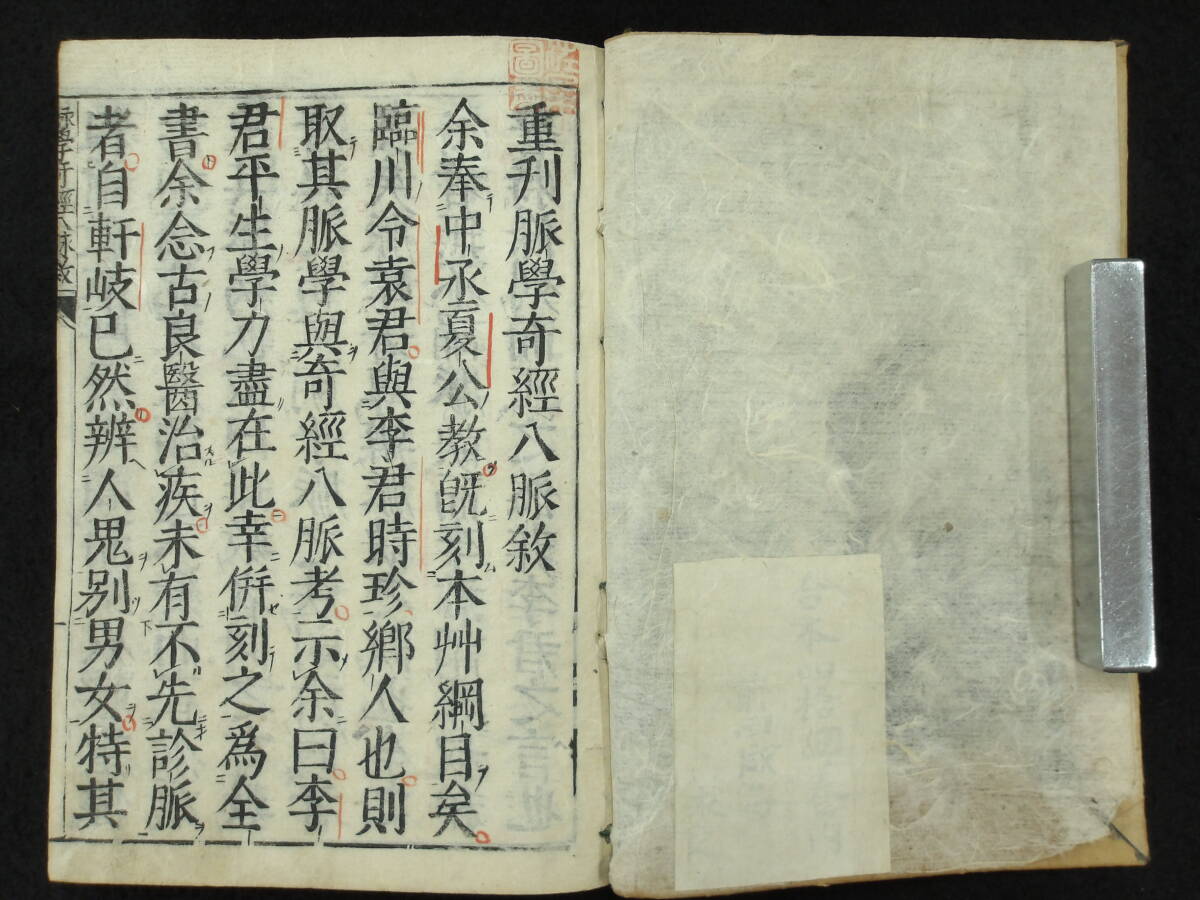 重刋脈學奇經八脈敘
余奉中丞夏公教旣刻本艸綱目矣
臨川令袁君與李君時珍鄉人也則
取其脈學與奇經八脈考示余曰李
君平生學力盡在此幸倂刻之爲全
書余念古良醫治疾未有不先診脈
者自軒岐已然辨人鬼别男女特其